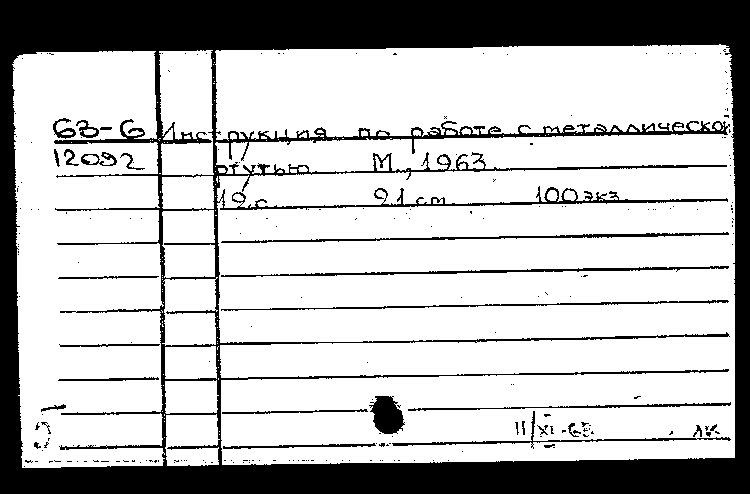 63-6 Инструкция по работе с металлическо
12092 ртутью. М., 1963.
12 с. 21 см. 100 экз.
11/XI-63. ЛК
5